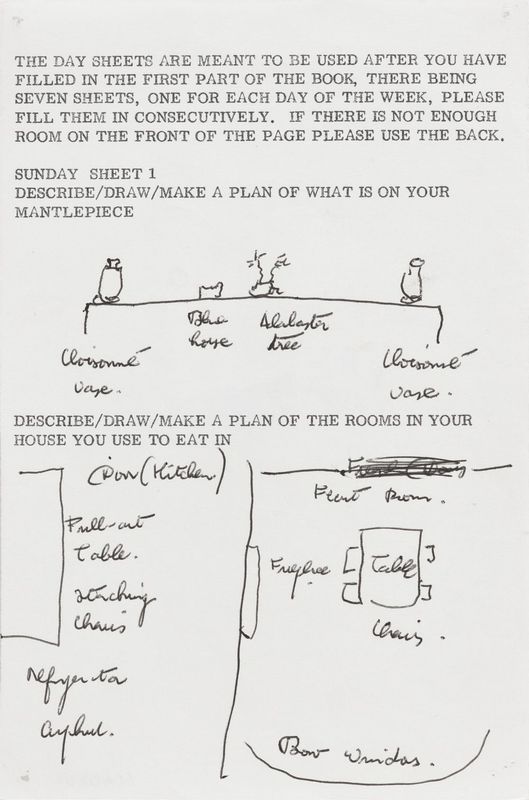 THE DAY SHEETS ARE MEANT TO BE USED AFTER YOU HAVE
FILLED IN THE FIRST PART OF THE BOOK, THERE BEING
SEVEN SHEETS, ONE FOR EACH DAY OF THE WEEK, PLEASE
FILL THEM IN CONSECUTIVELY. IF THERE IS NOT ENOUGH
ROOM ON THE FRONT OF THE PAGE PLEASE USE THE BACK.
SUNDAY SHEET 1
DESCRIBE/DRAW/MAKE A PLAN OF WHAT IS ON YOUR
MANTLEPIECE
Blue
horse
Alabaster
tree
Cloisonné
vase.
Cloisonné
vase.
DESCRIBE/DRAW/MAKE A PLAN OF THE ROOMS IN YOUR
HOUSE YOU USE TO EAT IN
Door (Kitchen)
Pull-out
Table.
Stacking
Chairs
Refrigerator
Front Room.
Fireplace
Table
Chairs.
Bow Windos.